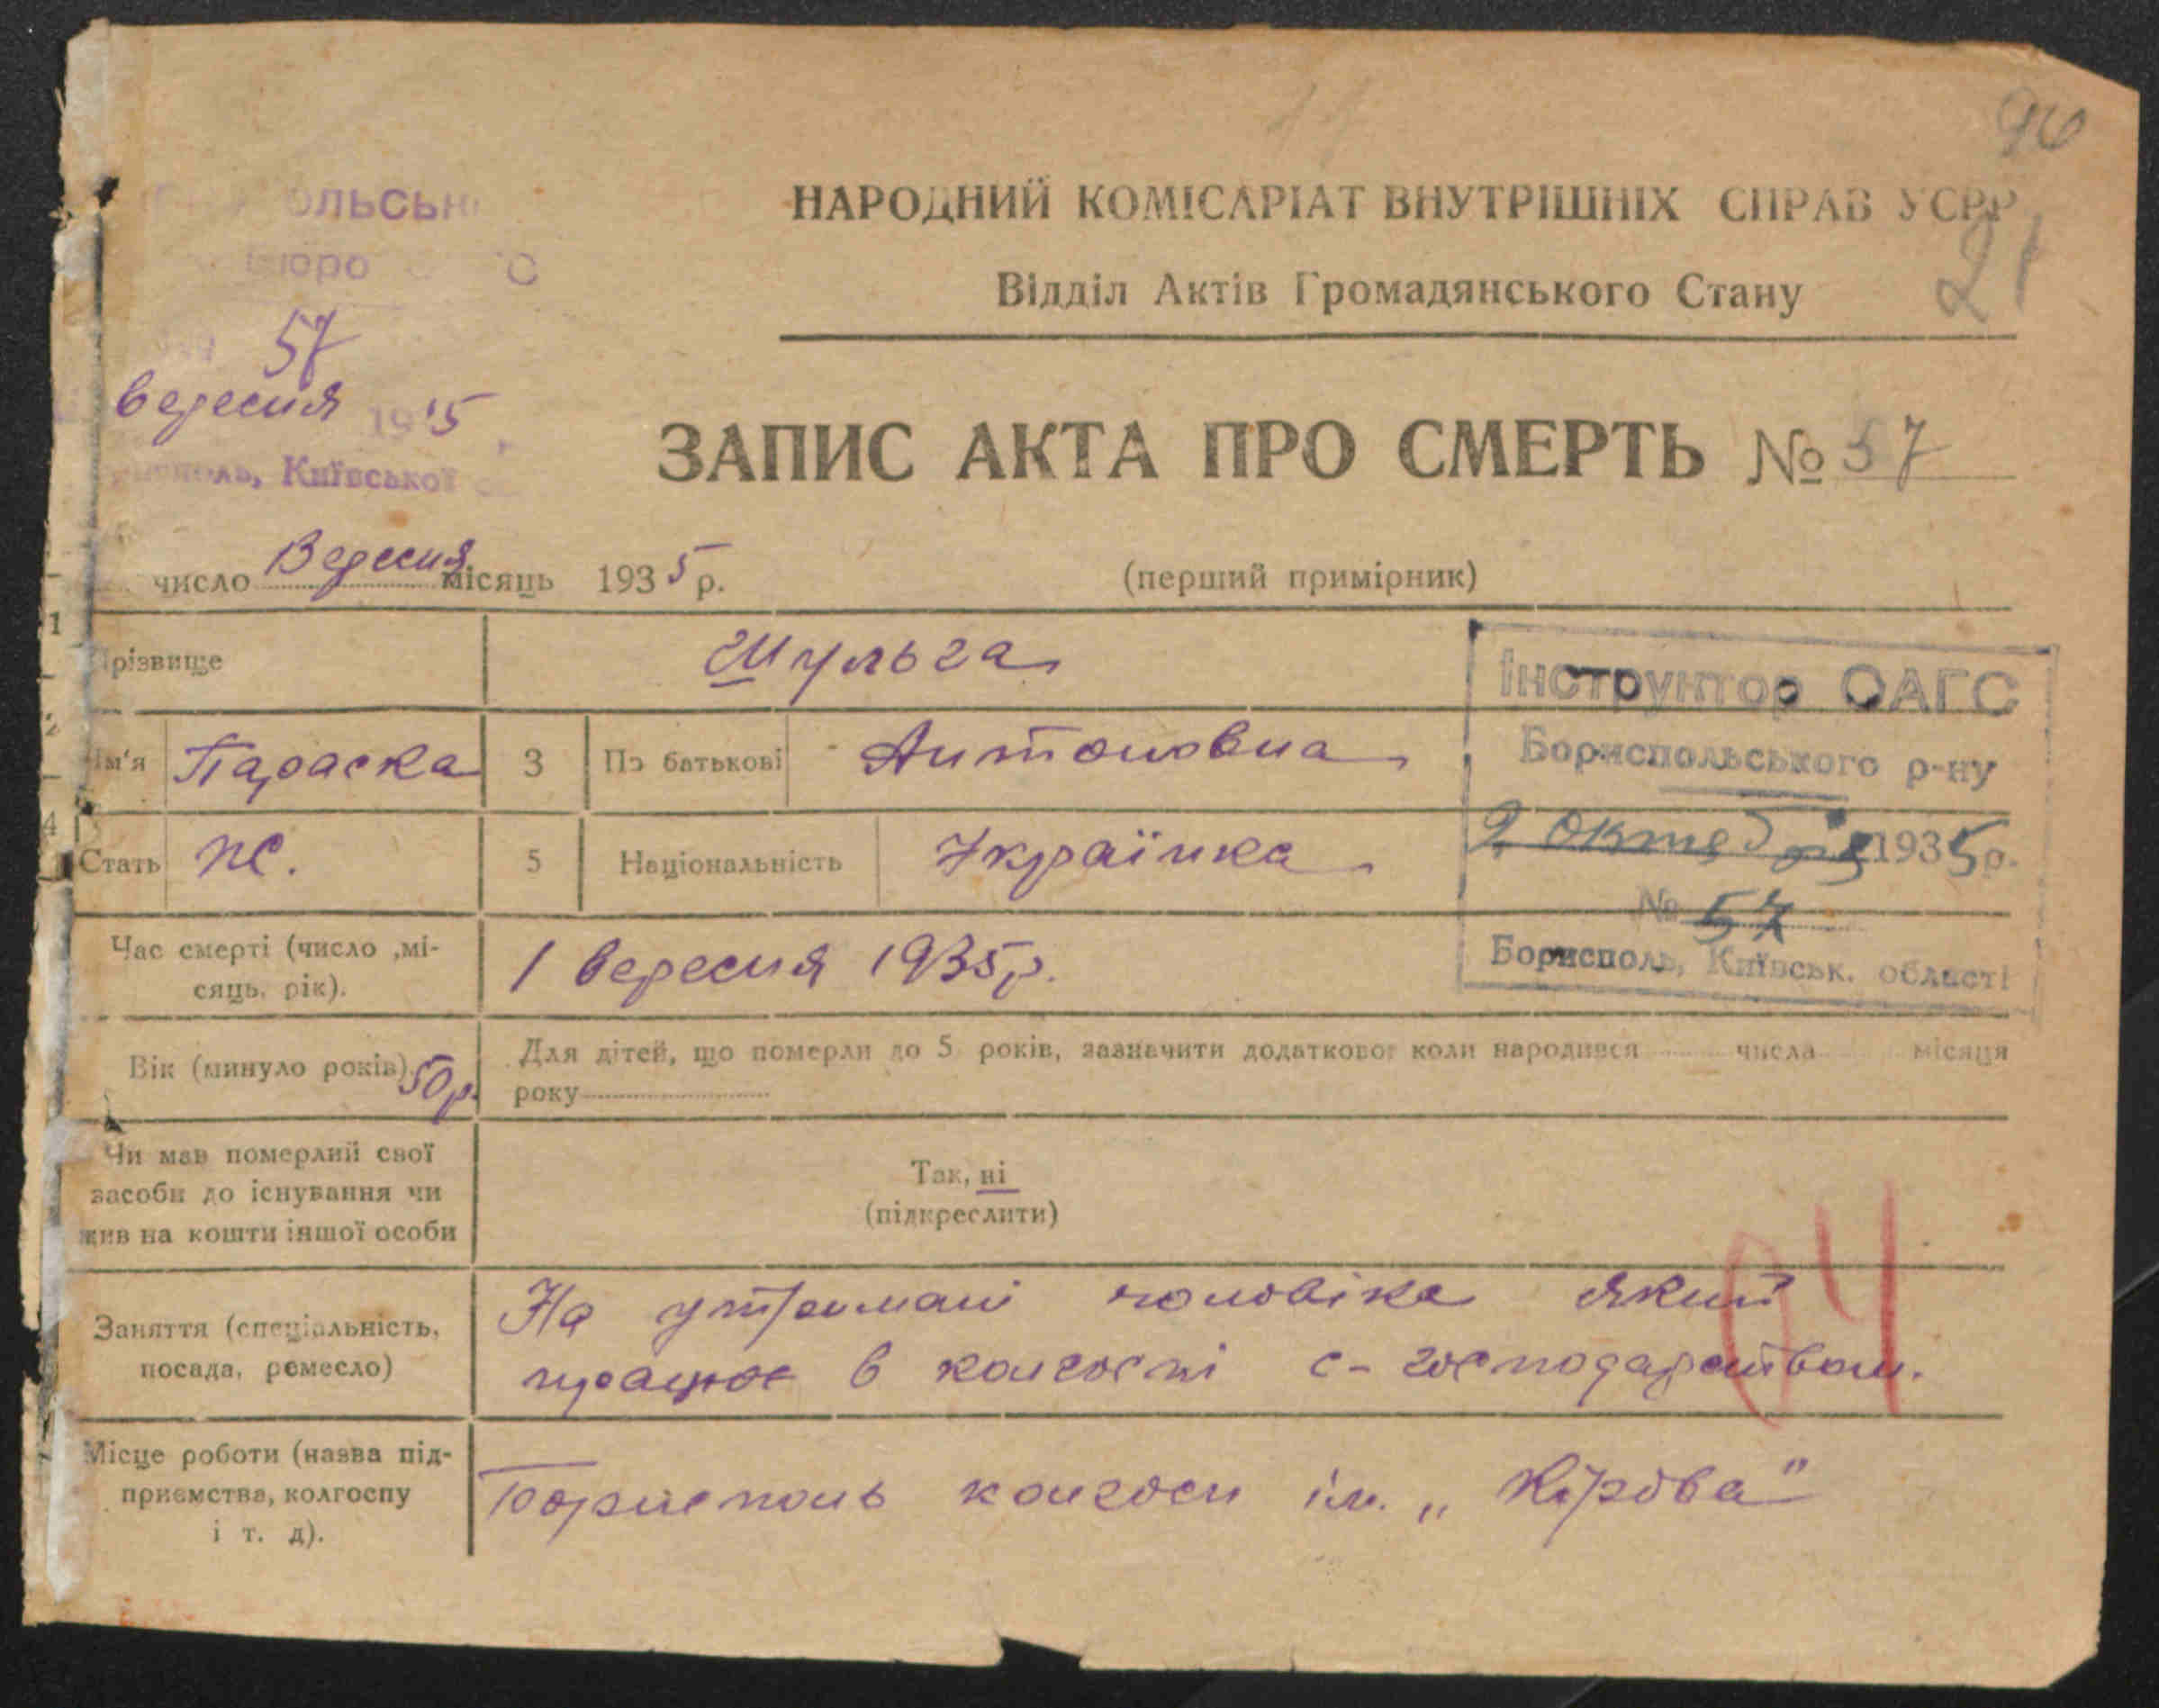 96
НАРОДНИЙ КОМІСАРІАТ ВНУТРІШНІХ СПРАВ УСРР
21
Відділ Актів Громадянського Стану
ольськ
Бюро
57
вересня 1935
Київської
ЗАПИС АКТА ПРО СМЕРТЬ № 57
число Вересня місяць 1935 р.
(перший примірник)
1
Прізвище
Шульга
2
Ім'я
Параска
3
По батькові
Антоновна
4
Стать
ж.
5
Національність
Українка
Інструктор ОАГС
Бориспольського р-ну
2 октября 1935 р.
№ 57
Борисполь, Київськ. області
Час смерті (число ,мі-
сяць, рік).
1 вересня 1935р.
Вік (минуло років) 50 р.
Для дітей, що померли до 5 років, зазначити додатково: коли народився числа місяця
року
Чи мав померлий свої
засоби до існування чи
жив на кошти іншої особи
Так, ні
(підкреслити)
Заняття (спеціальність,
посада, ремесло)
На утримані чоловіка який
працює в колгоспі с-господарством.
04
Місце роботи (назва під-
приємства, колгоспу
і т. д).
Борисполь колгосп ім. „Кірова"